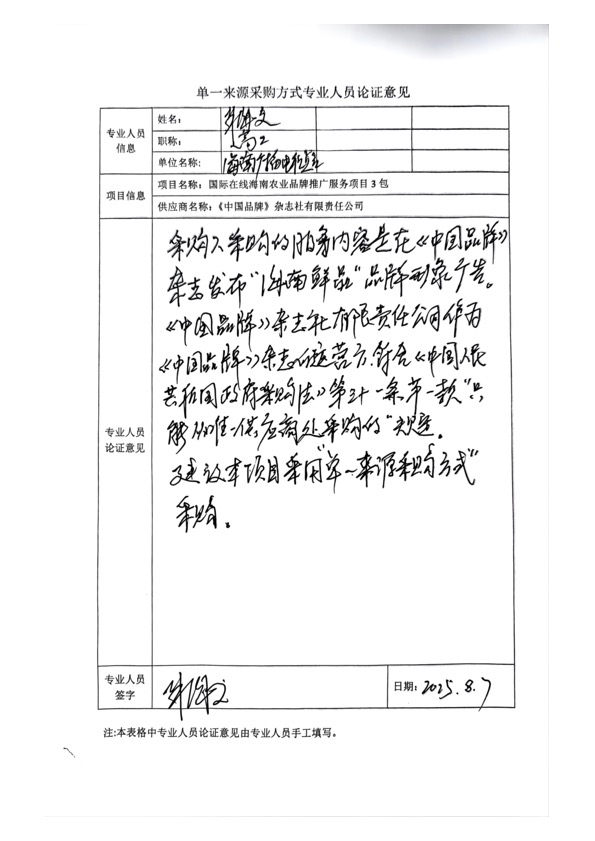 单一来源采购方式专业人员论证意见
专业人员信息
姓名：
职称： 高工
单位名称: 海南广播电视
项目信息
项目名称：国际在线海南农业品牌推广服务项目3包
供应商名称：《中国品牌》杂志社有限责任公司
专业人员论证意见
采购人采购的服务内容是在《中国品牌》
杂志发布“海南鲜品”品牌形象广告。
《中国品牌》杂志社有限责任公司作为
《中国品牌》杂志运营方，符合《中国人民
共和国政府采购法》第三十一条第一款“只
能从唯一供应商处采购的”规定。
建议本项目采用“单一来源采购方式”
采购。
专业人员签字
日期: 2025.8.7
注:本表格中专业人员论证意见由专业人员手工填写。